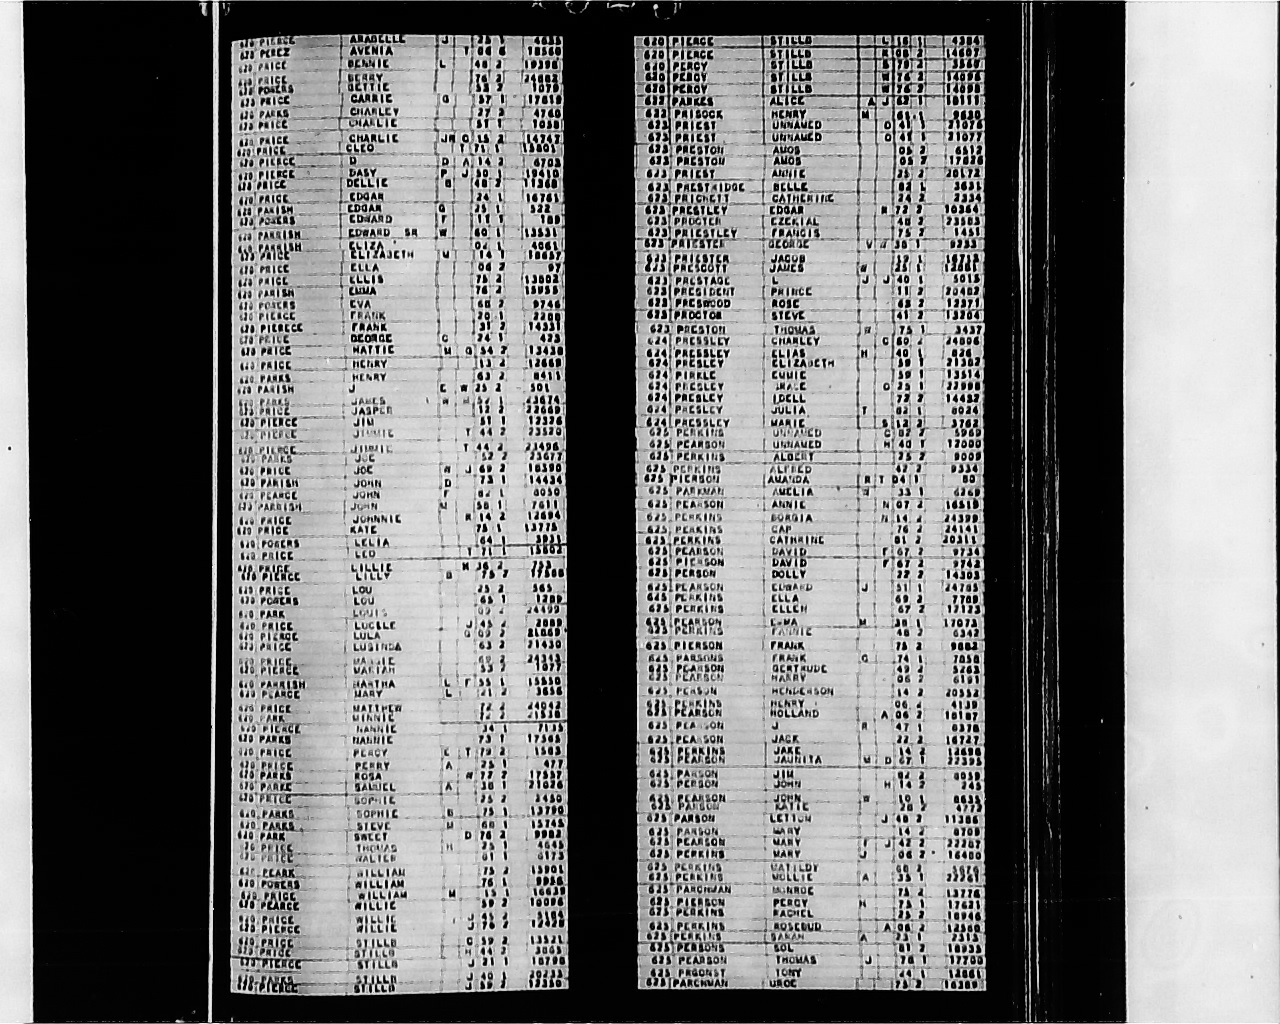 620 PIERCE ARABELLE J 25 1
620 PEREZ AVENIA T 66 6 18560
620 PRICE BENNIE L 48 2 19398
620 PRICE BERRY 76 2
620 POWERS BETTIE 53 2 1079
620 PRICE CARRIE G 57 1 17619
620 PARKS CHARLEY 27 2 4760
620 PRICE CHARLIE 51 1 1058
620 PRICE CHARLIE JR G 15 2 14747
620 PRICE CLEO T 71 1 15801
620 PIERCE D D A 14 2 6703
620 PIERCE DASY P J 50 1 19410
620 PRICE DELLIE B 48 2 11368
620 PRICE EDGAR 24 1 16761
620 PARISH EDGAR G 25 1 522
620 POWERS EDWARD F 11 1 189
620 PARRISH EDWARD SR W 60 1 13531
620 PARRISH ELIZA 02 1 4061
620 PRICE ELIZABETH M 14 1 18657
620 PRICE ELLA 06 2 97
620 PRICE ELLIS 75 2 13802
620 PARISH EMMA 76 2 15955
620 POWERS EVA 60 2 9746
620 PIERCE FRANK 20 1 2200
620 PIERECE FRANK 31 2 14331
620 PRICE GEORGE C 24 1 423
620 PRICE HATTIE M G 54 2 13438
620 PRICE HENRY 13 2 12669
620 PARKS HENRY 63 2 8411
620 PARISH J E W 25 2 501
620 PARKS JAMES W H 52 1 23674
620 PRICE JASPER 12 2 22669
620 PIERCE JIM 51 1 12326
620 PIERCE JIMMIE T 44 2 23520
620 PIERCE JIMMIE T 44 2 23496
620 PARKS JOE 52 2 23677
620 PRICE JOE W J 69 2 18390
620 PARISH JOHN D 73 1 14434
620 PEARCE JOHN F 82 1 8050
620 PARRISH JOHN M 58 1 7611
620 PRICE JOHNNIE R 14 2 12694
620 PRICE KATE 75 1 13775
620 POWERS LELIA 64 1 3931
620 PRICE LEO T 71 1 15802
620 PRICE LILLIE M 36 2 753
620 PIERCE LILLY B 75 2 17508
620 PRICE LOU 25 2 565
620 POWERS LOU 65 1 1789
620 PARK LOUIS 09 2 24499
620 PRICE LUCILE J 45 2 2089
620 PIERCE LULA G 09 2 21069
620 PRICE LUSINDA 63 2 21430
620 PRICE 24345
620 PIERCE MARIAH 53 2
620 PARRISH MARTHA L F 55 1 15550
620 PEARCE MARY L 21 2 3856
620 PRICE MATTHEW 72 2 24042
620 PARK MINNIE 72 2 21538
620 PIERCE NANNIE 34 1 7135
620 PARKS NANNIE 73 1 17565
620 PRICE PERCY E T 79 2 1583
620 PRICE PERRY A 25 1 477
620 PARKS ROSA W 77 2 17557
620 PARKS SAMUEL A 38 1 21026
620 PRICE SOPHIE 25 2 2450
620 PARKS SOPHIE B 75 1 13790
620 PARKS STEVE M 60 1 15745
620 PARK SWEET D 76 2 9982
620 PRICE THOMAS H 25 1 4645
620 PRICE WALTER 61 1 6173
620 PEARK WILLIAM 75 2 15901
620 POWERS WILLIAM 76 1 9956
620 PRICE WILLIAM M 15 1 16639
620 PEARCE WILLIE 59 2 10096
620 PRICE WILLIE L 45 2 5184
620 PIERCE WILLIE J 75 2 12429
620 PRICE STILLB C 59 2 13521
620 PRICE STILLB H 44 2 3065
620 PIERCE STILLB J 21 1 18798
620 PARKS STILLB J 40 1 20233
620 PIERCE STILLB J 59 2 17350
620 PIERCE STILLB L 16 1 4384
620 PIERCE STILLB R 08 2 14607
620 PERCY STILLB S 79 2 3567
620 PERCY STILLB W 76 2 14096
620 PERCY STILLB W 76 2 14098
623 PARKES ALICE A J 62 1 18111
623 PRISOCK HENRY M 61 1 9630
623 PRIEST UNNAMED O 41 1 21076
623 PRIEST UNNAMED O 41 1 21077
623 PRESTON AMOS 05 2 6512
623 PRESTON AMOS 05 2 17828
623 PRIEST ANNIE 25 2 20172
623 PRESTRIDGE BELLE 82 1 3631
623 PRICHETT CATHERINE 24 2 2334
623 PRESTLEY EDGAR R 72 2 10364
623 PROCTER EZEKIAL 48 2 23583
623 PRIESTLEY FRANCIS 75 2 1451
623 PRIESTER GEORGE V W 38 1 9233
623 PRIESTER JACOB 19 1 18715
623 PRESCOTT JAMES W 25 1 12861
623 PRESTAGE L J J 40 1 5015
623 PRESIDENT PRINCE 11 2 20402
623 PRESWOOD ROSE 65 2 12371
623 PROCTOR STEVE 41 2 13204
623 PRESTON THOMAS W 75 1 3437
624 PRESSLEY CHARLEY C 60 2 24806
624 PRESSLEY ELIAS H 40 1 826
624 PRESLEY ELIZABETH 59 1 21382
624 PIRKLE EMMIE 59 1 13514
624 PRESLEY GRACE O 25 1 22998
624 PRESLEY IDELL 72 2 14452
624 PRESLEY JULIA T 82 1 8024
624 PRESSLEY MARIE S 12 2 3762
625 PERKINS UNNAMED C 02 2 5969
625 PEARSON UNNAMED H 40 1 12000
625 PERKINS ALBERT 25 2 9009
625 PERKINS ALFRED 42 2 9334
625 PIERSON AMANDA R T 04 1 80
625 PARKMAN AMELIA W 33 1 6269
625 PEARSON ANNIE N 07 2 16519
625 PERKINS BORGIA N 14 2 24399
625 PERKINS CAP 76 2 24141
625 PERKINS CATHRINE 81 2 20311
625 PEARSON DAVID F 67 2 9734
625 PIERSON DAVID F 67 2 9743
625 PERSON DOLLY 22 2 14303
625 PEARSON EDWARD J 51 1 24785
625 PERKINS ELLA 69 2 7789
625 PERKINS ELLEN 67 2 17123
625 PEARSON EMMA M 38 1 17073
625 PERKINS FANNIE 48 2 6342
625 PIERSON FRANK 75 2 9882
625 PARSONS FRANK G 74 1 7058
625 PEARSON GERTRUDE 49 2 5263
625 PEARSON HARRY 06 2 6191
625 PEARSON HENDERSON 14 2 20552
625 PERKINS HENRY 06 2 4139
625 PEARSON HOLLAND A 06 2 18187
625 PEARSON J R 47 1 6378
625 PEARSON JACK 22 2 16727
625 PERKINS JAKE 14 2 12698
625 PEARSON JAUNITA M D 67 1 22395
625 PARSON JIM 82 2 8059
625 PERSON JOHN H 14 2 245
625 PEARSON JOHN W 10 1 8635
625 PARSON KATIE 26 2 4772
625 PARSON LETTUM J 48 2 11386
625 PARSON MARY 14 2 8709
625 PEARSON MARY F J 42 2 22207
625 PERKINS MARY J 06 2 16400
625 PERKINS MATILDY 66 2
625 PERKINS MOLLIE A 35 1 22567
625 PARCHMAN MONROE 75 2 13776
625 PIERSON PERCY H 75 1 17621
625 PERKINS RACHEL 25 2 10946
625 PERKINS ROSEBUD A 06 2 12560
625 PERKINS SARAH A 23 1 2315
625 PERSONS SOL 81 2 18935
625 PEARSON THOMAS J 76 1 17700
625 PRGONST TONY 44 1 13861
625 PARCHMAN UROE 75 2 16389